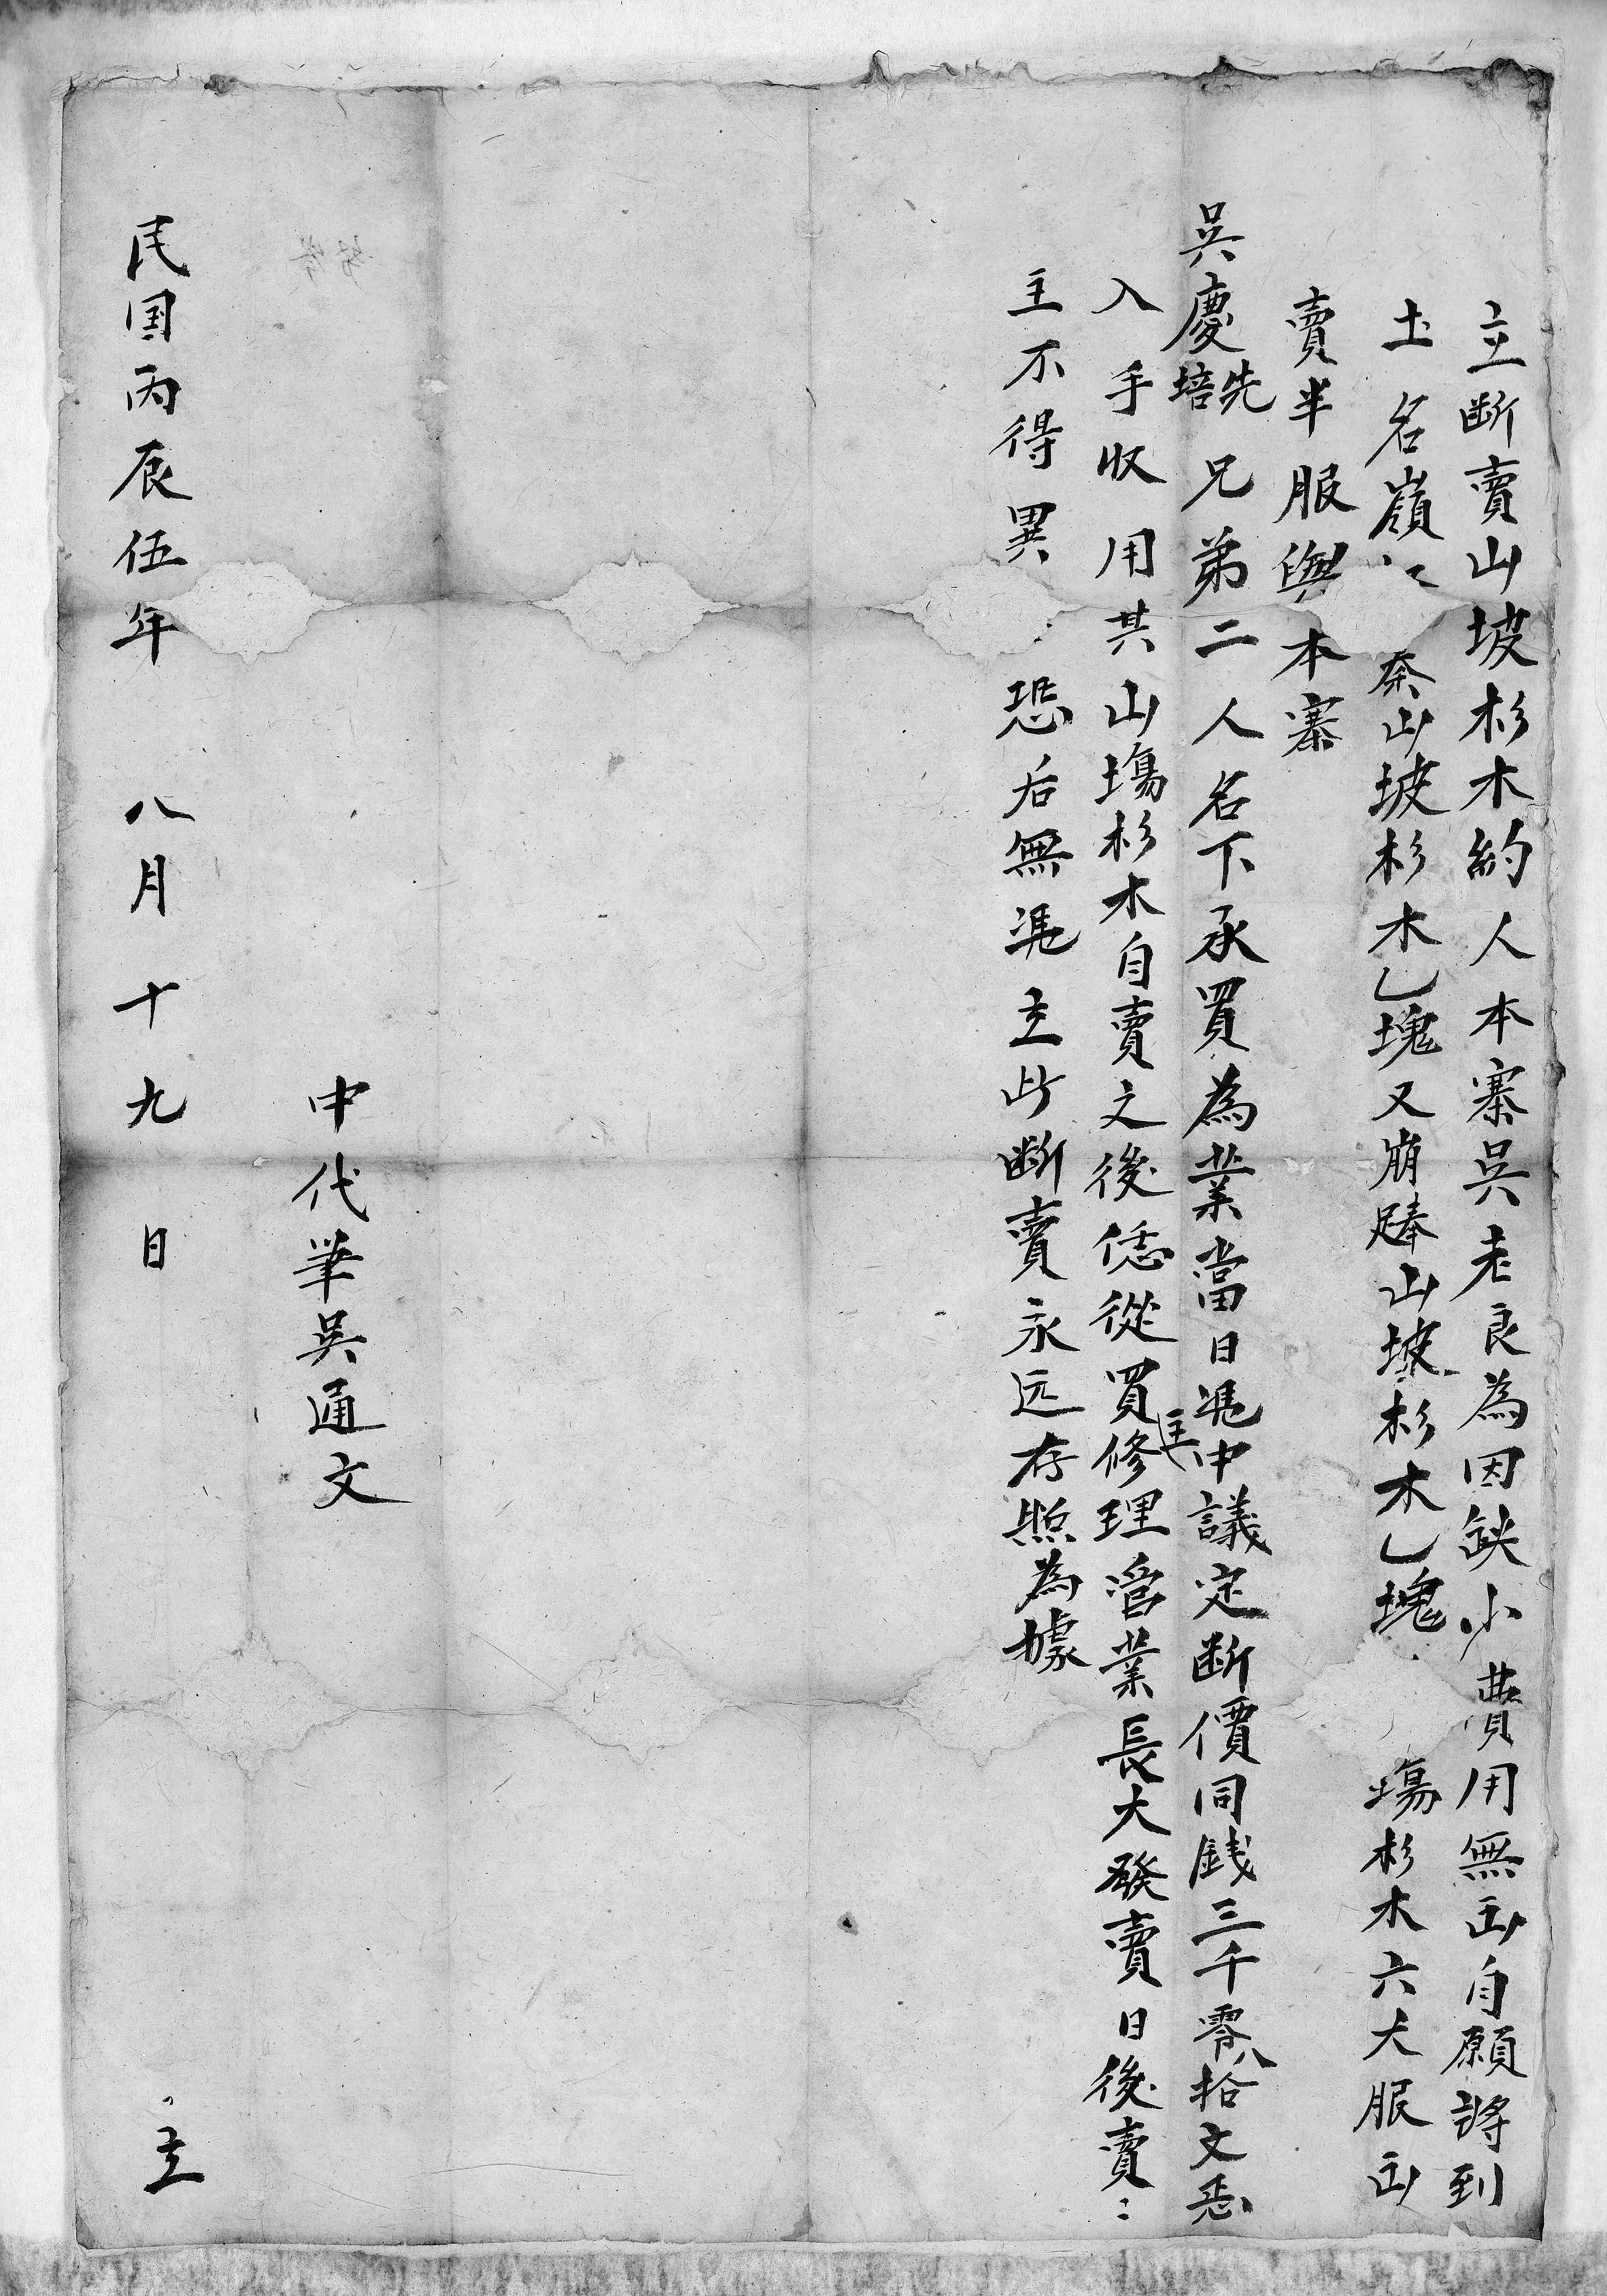 立断賣山坡杉木約人本寨吳老良為因缺小費用無出自願將到
土名嶺山坡杉木乙塊又崩山坡杉木乙塊塲杉木六大服出
賣半服與本寨
吳慶培先兄弟二人名下承買為業當日凴中議定断價同銭三千零八拾文悉
入手收用其山塲杉木自賣之後恁從買主修理管業長大發賣日後賣
主不得異恐后無凴立此断賣永远存照為據
中代筆吳通文
民国丙辰伍年八月十九日立